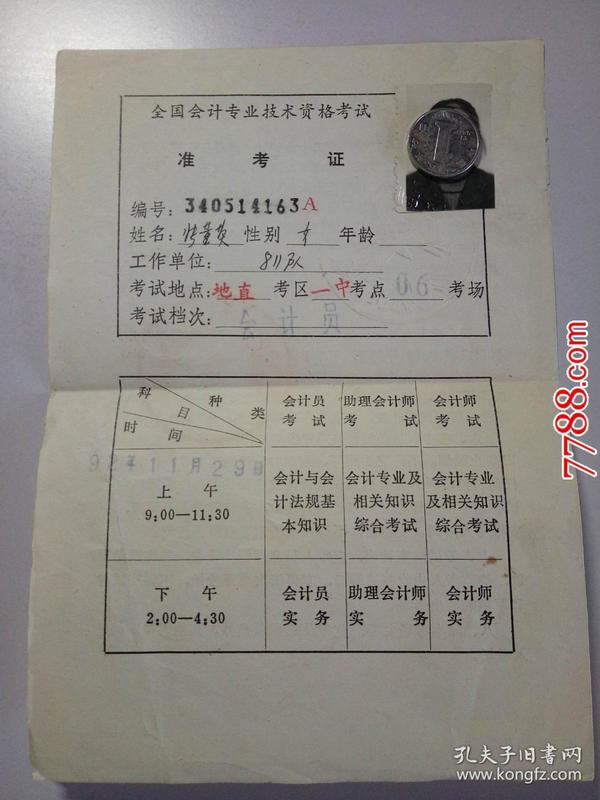 全国会计专业技术资格考试
准考证
编号：340514163A
姓名： 性别 女 年龄
工作单位： 811队
考试地点：地直 考区 一中 考点 06 考场
考试档次： 会计员
科目 种类 时间 会计员考试 助理会计师考试 会计师考试
92年11月29日
上午 9:00—11:30 会计与会计法规基本知识 会计专业及相关知识综合考试 会计专业及相关知识综合考试
下午 2:00—4:30 会计员实务 助理会计师实务 会计师实务
7788.com
孔夫子旧书网
www.kongfz.com